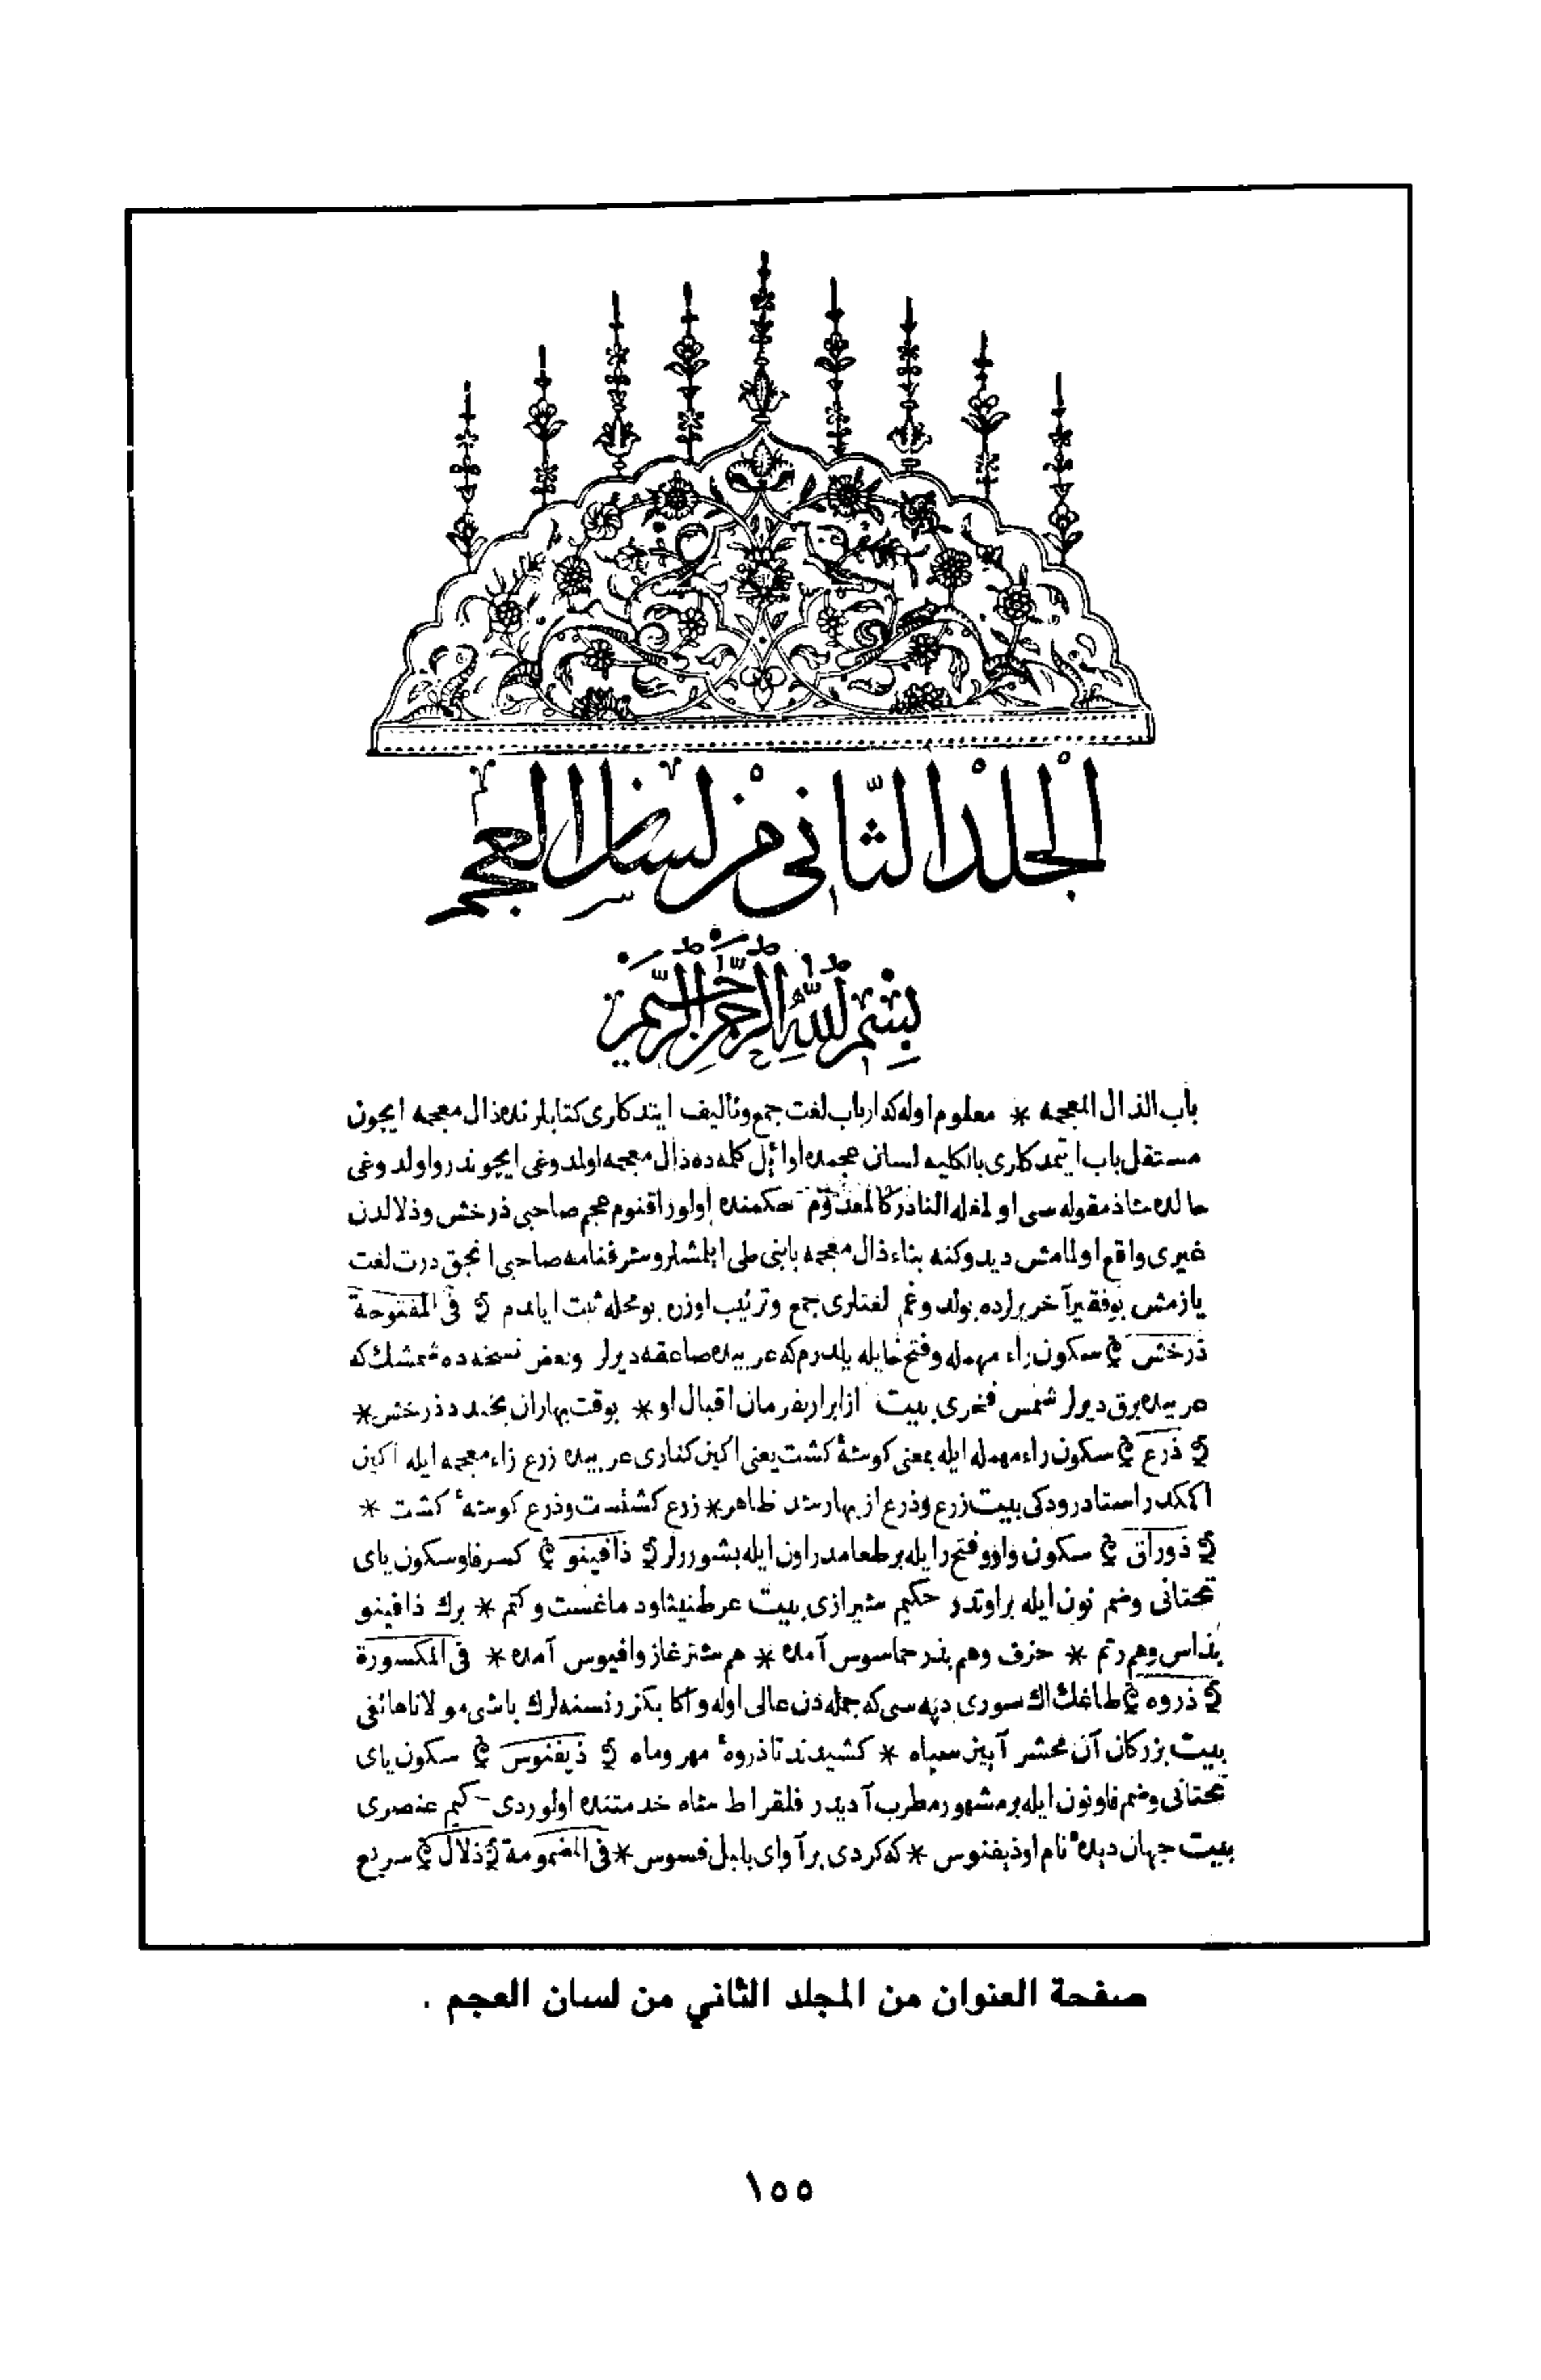 الجلد الثانى من لسان العجم
بسم الله الرحمن الرحيم
باب الذال المعجمه * معلوم اوله كه ارباب لغت جمع وتأليف ايتدكلرى كتابلرنده ذال معجمه ايچون
مستقل باب ايتمدكلرى بالكليه لسان عجمده اوائل كلمه ده ذال معجمه اولمدوغى ايچوندر واولدوغى
حالده شاذ مقوله سى اولمغله النادر كالمعدوم حكمنده اولور اقنوم عجم صاحبى ذرخش وذلالدن
غيرى واقع اولمامش ديدوكنه بناء ذال معجمه بابنى طى ايلمشلر وشرفنامه صاحبى انجق درت لغت
يازمش بوفقير آخر يرلرده بولدوغم لغتلرى جمع وترتيب اوزره بومحله ثبت ايلدم ﴿ فى المفتوحة
ذرخش ﴾ سكون راء مهمله وفتح خايله يلدرم كه عربيده صاعقه ديرلر وبعض نسخه ده شمشك كه
عربيده برق ديرلر شمس فخرى بيت از ابر ار بفرمان اقبال او * بوقت بهاران بخندد ذرخش *
﴿ ذرع ﴾ سكون راء مهمله ايله بمعنى كوشهٔ كشت يعنى اكين كنارى عربيده زرع زاء معجمه ايله اكين
اكمكدر استاد رودكى بيت زرع وذرع از بهار شد ظاهر * زرع كشتست وذرع كوشهٔ كشت *
﴿ ذوراق ﴾ سكون واو وفتح رايله بر طعامدر اون ايله بشوررلر ﴿ ذافينو ﴾ كسر فا وسكون ياى
تحتانى وضم نون ايله بر اوتدر حكيم شيرازى بيت عرطنيثاود ماغست وكتم * برك ذافينو
بنداس وهم رتم * حزف وهم بنذر حماسوس آمده * هم شترغاز وافيوس آمده * فى المكسورة
﴿ ذروه ﴾ طاغك اك سورى دپه سى كه جمله دن عالى اوله واكا بكزر نسنه لرك باشى مولانا هاتفى
بيت بزركان آن محشر آيين سپاه * كشيدند تا ذروهٔ مهر وماه ﴿ ذيفنوس ﴾ سكون ياى
تحتانى وضم فا ونون ايله بر مشهور مطرب آديدر فلقراط شاه خدمتنده اولوردى حكيم عنصرى
بيت جهان ديدهٔ نام او ذيفنوس * كه كردى بر آواى بلبل فسوس * فى المضمومة ﴿ ذلال ﴾ سريع
صفحة العنوان من المجلد الثاني من لسان العجم .
١٥٥